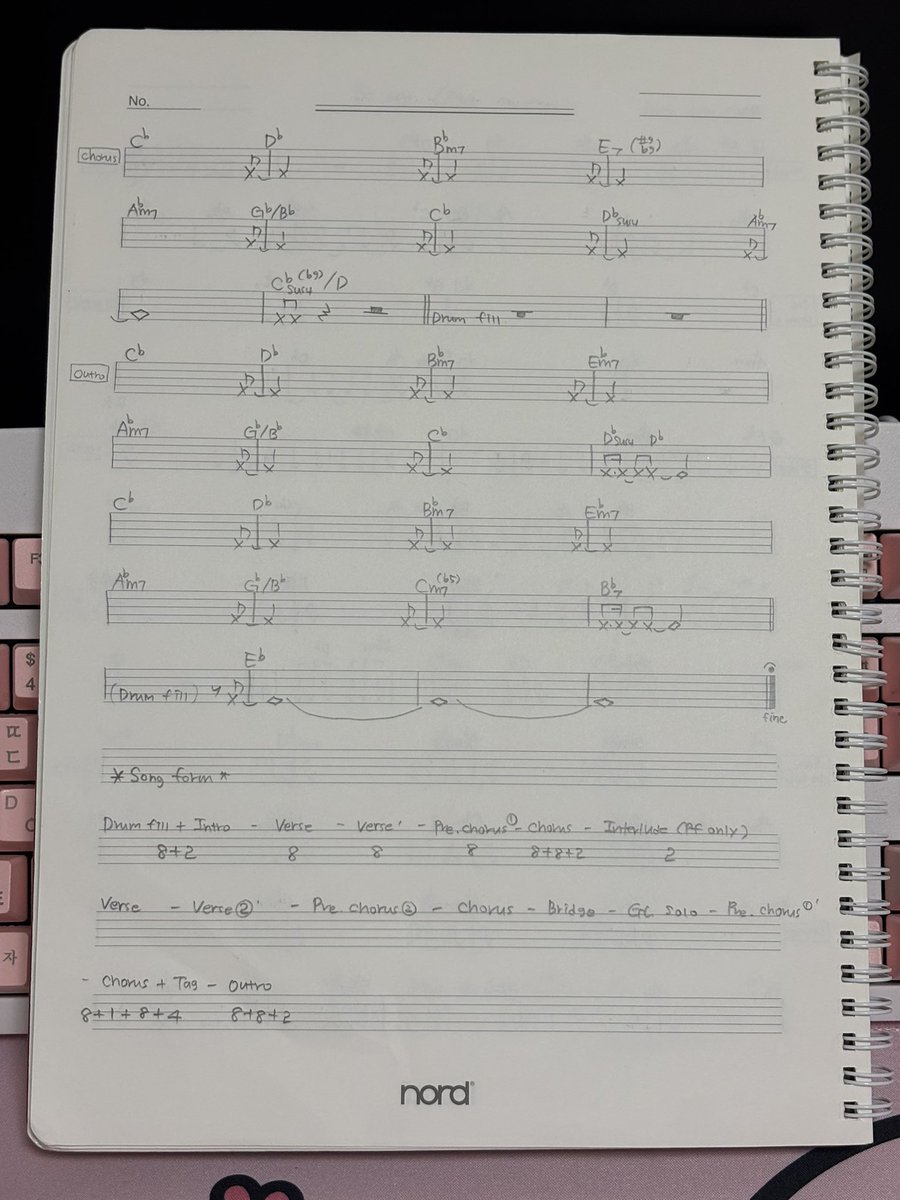 No.
Chorus C♭ D♭ B♭m7 E7 (#9 b9)
A♭m7 G♭/B♭ C♭ D♭sus4 A♭m7
C♭sus4(b9)/D
Drum fill
Outro C♭ D♭ B♭m7 E♭m7
A♭m7 G♭/B♭ C♭ D♭sus4 D♭
C♭ D♭ B♭m7 E♭m7
A♭m7 G♭/B♭ Cm7(b5) B♭7
E♭
(Drum fill)
fine
* Song form *
Drum fill + Intro - Verse - Verse' - Pre. chorus① - Chorus - Interlude (Pf only)
8+2 8 8 8 8+8+2 2
Verse - Verse②' - Pre. chorus② - Chorus - Bridge - Gt. Solo - Pre. chorus①'
- Chorus + Tag - Outro
8+1+8+4 8+8+2
nord
$
4
ㄸ
ㄷ
D
자